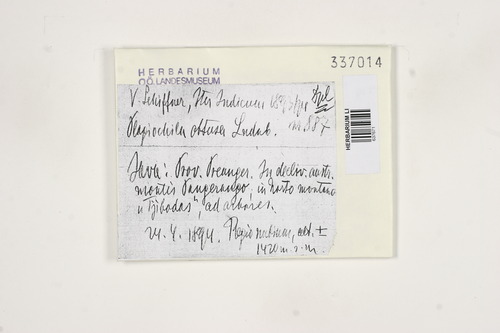 337014
HERBARIUM
OÖ. LANDESMUSEUM
V. Schiffner, Iter Indicum 1893/94
Plagiochila obtusa Lndnb. nr. 887
Java: Prov. Preanger. In decliv. austr.
montis Pangerango, in horto montano
"Tjibodas", ad arbores.
24. 4. 1894. Regio nubium, alt. ±
1420 m. s. m.
HERBARIUM LI